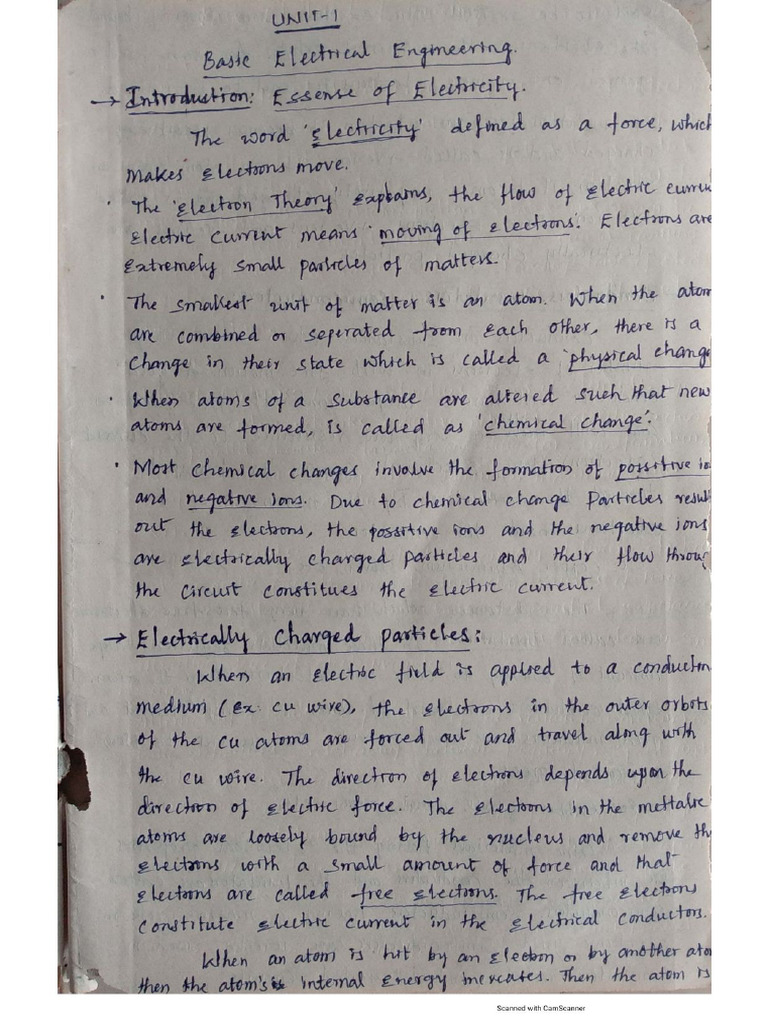 UNIT-1
Basic Electrical Engineering.
→ Introduction: Essense of Electricity.
The word 'Electricity' defined as a force, which
makes Electrons move.
· The 'Electron Theory' explains, the flow of Electric curre
Electric current means 'moving of Electrons'. Electrons are
Extremely small particles of matters.
· The smallest unit of matter is an atom. When the atom
are combined or seperated from each other, there is a
change in their state which is called a 'physical change
· When atoms of a substance are altered such that new
atoms are formed, is called as 'chemical change'.
· Most chemical changes involve the formation of possitive io
and negative ions. Due to chemical change Particles result
out the electrons, the possitive ions and the negative ions
are electrically charged particles and their flow throug
the circuit constitues the electric current.
→ Electrically Charged particles:
When an electric field is applied to a conductin
medium (Ex. cu wire), the electrons in the outer orbots
of the cu atoms are forced out and travel along with
the cu wire. The direction of electrons depends upon the
direction of electric force. The electrons in the mettalic
atoms are loosely bound by the nucleus and remove the
electrons with a small amount of force and that
electrons are called free electrons. The free electrons
constitute electric current in the electrical conductors.
When an atom is hit by an electron or by another ato
then the atom's internal energy increates. Then the atom is
Scanned with CamScanner